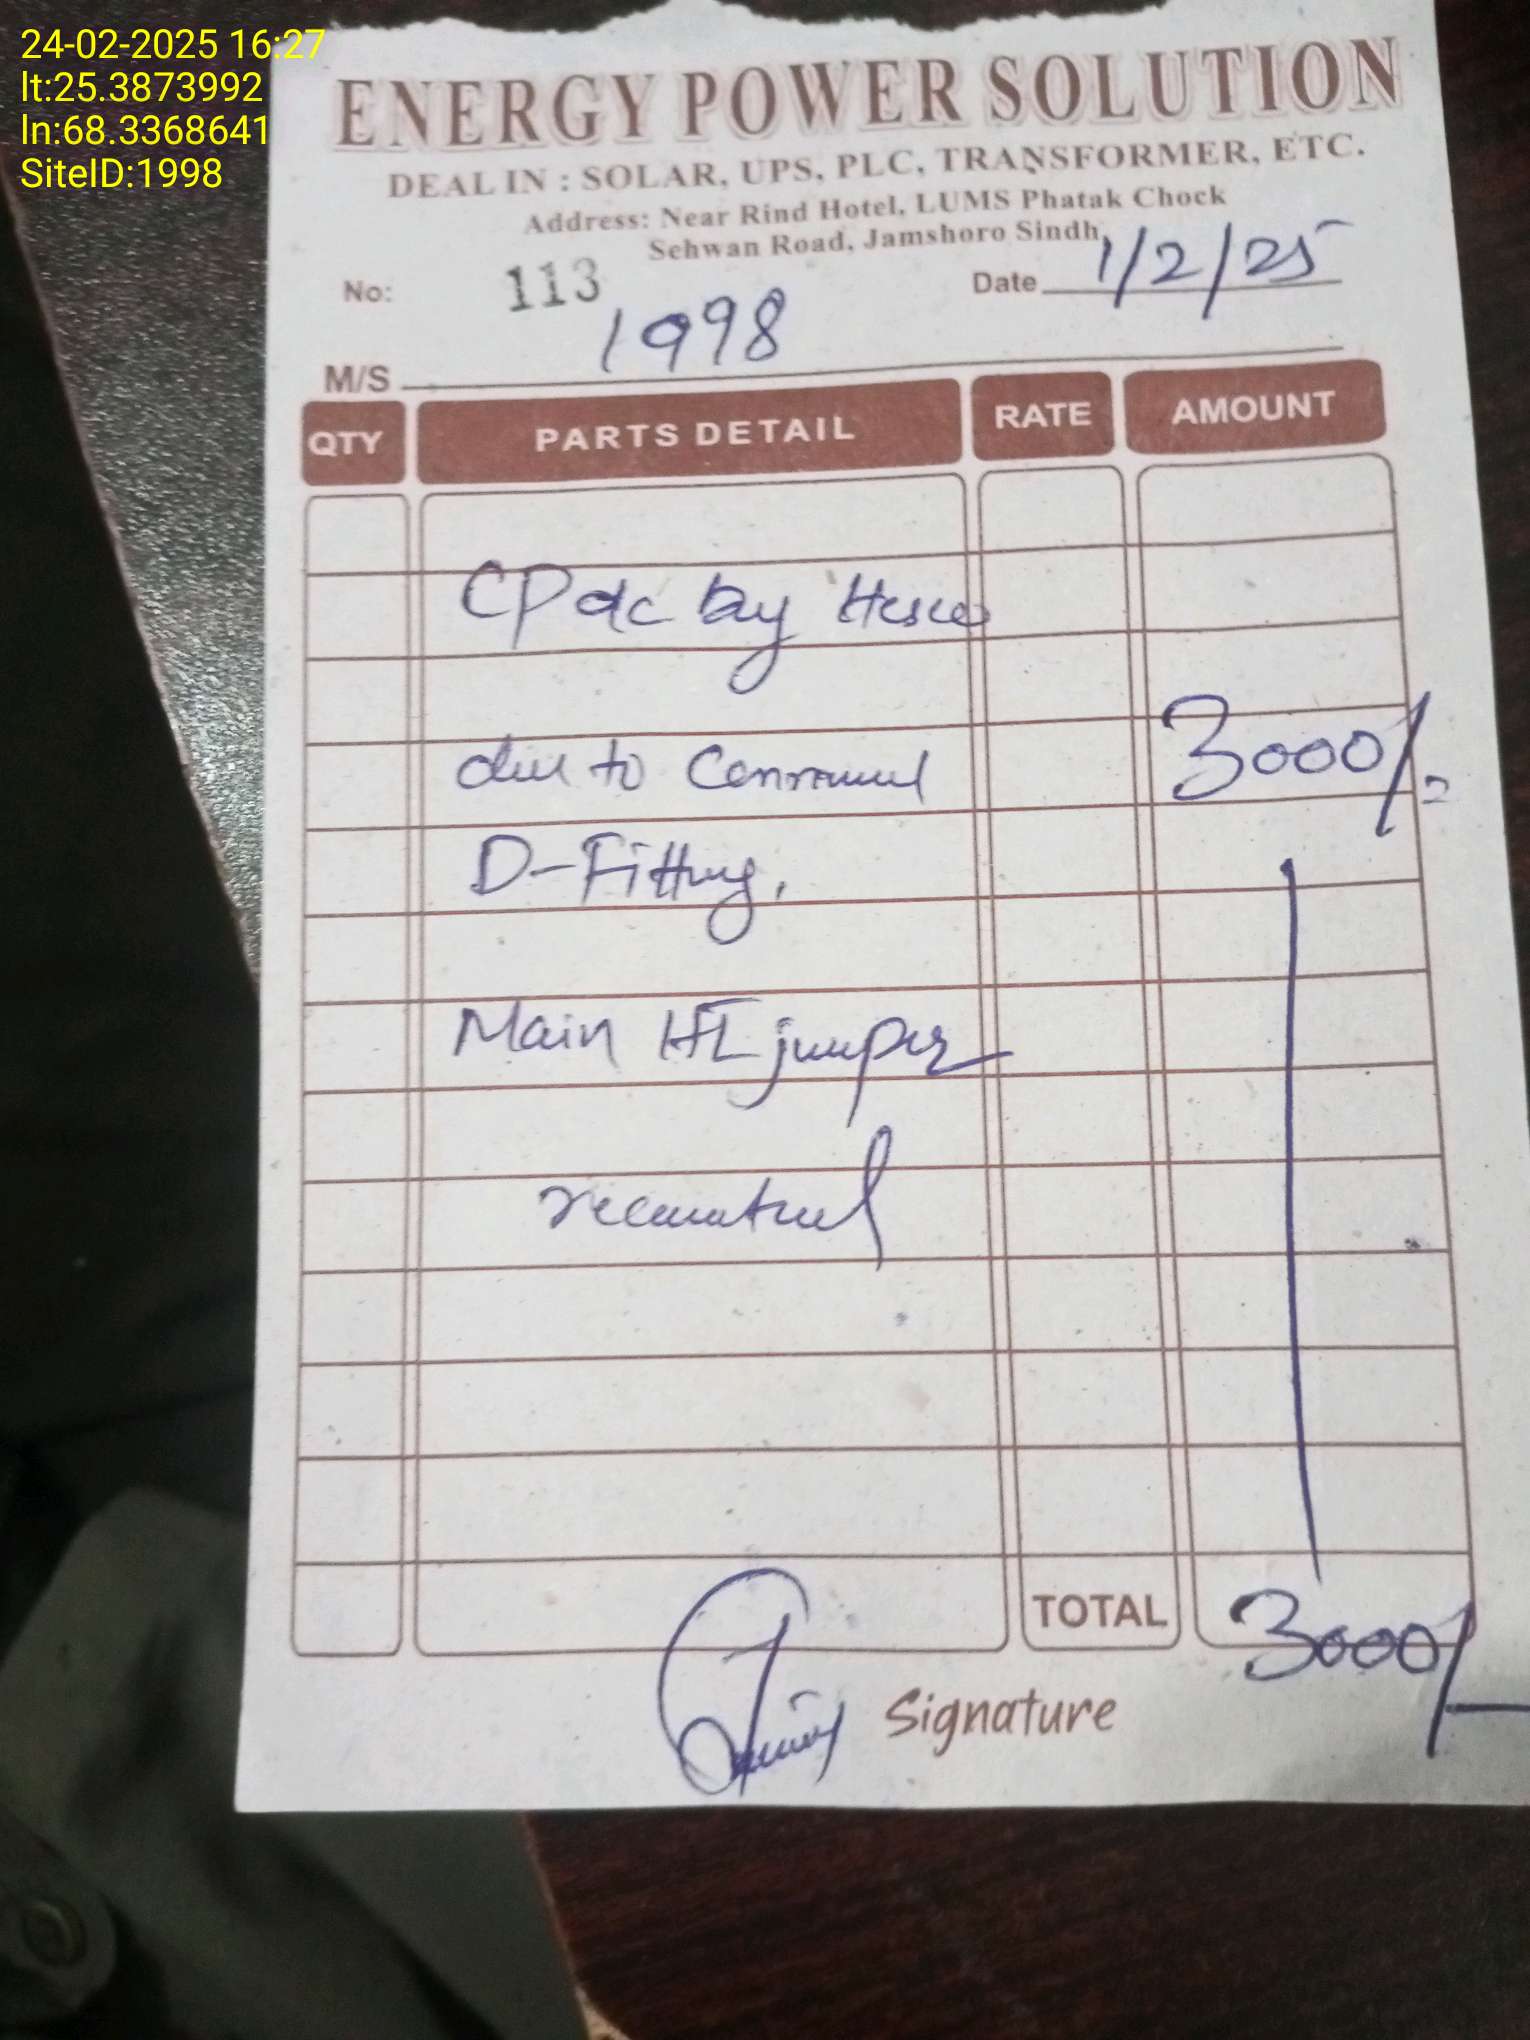 24-02-2025 16:27
lt:25.3873992
ln:68.3368641
SiteID:1998
ENERGY POWER SOLUTION
DEAL IN : SOLAR, UPS, PLC, TRANSFORMER, ETC.
Address: Near Rind Hotel, LUMS Phatak Chock
Sehwan Road, Jamshoro Sindh,
No: 113 Date 1/2/25
M/S 1998
QTY PARTS DETAIL RATE AMOUNT
CP dc by Hesco
due to 3000/=
D-Fitting,
Main HT jumper
TOTAL 3000/-
Signature